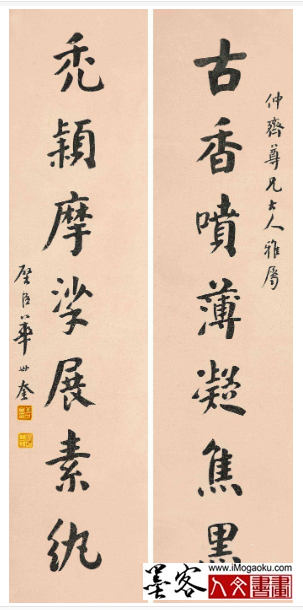 仲齋尊兄大人雅屬
古香噴薄凝焦黑
禿穎摩挲展素紈
璧臣華世奎
www.iMogaoku.com
墨客人文書畫